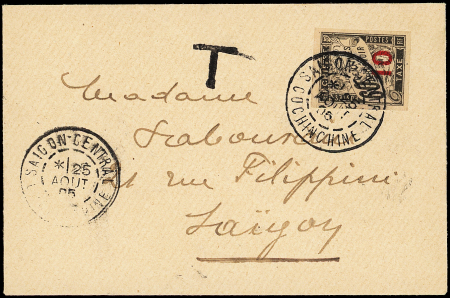 T
POSTES
10
TAXE
SAIGON-CENTRAL
COCHINCHINE
Madame
rue Filippini
Saïgon
SAIGON-CENTRAL
25
AOUT